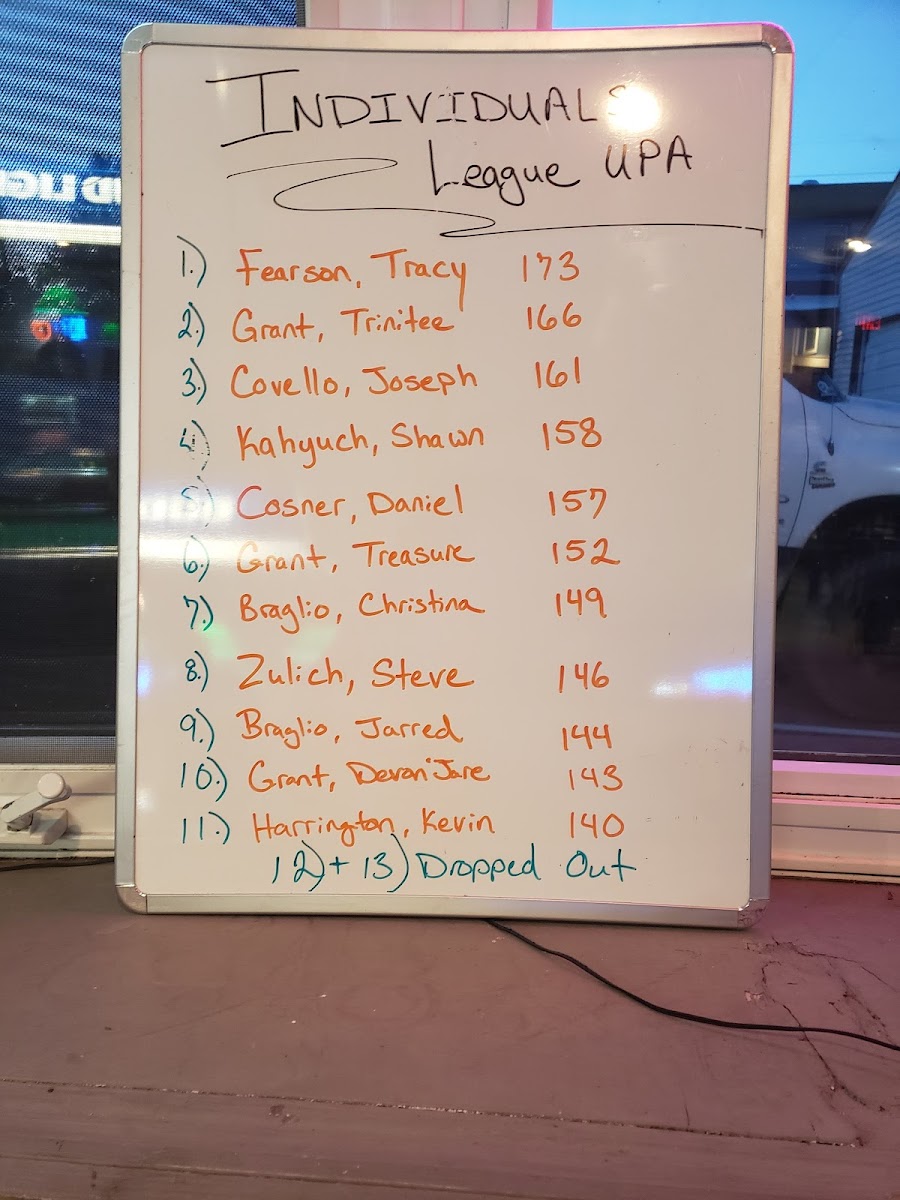 INDIVIDUALS
League UPA
1.) Fearson, Tracy 173
2.) Grant, Trinitee 166
3.) Covello, Joseph 161
4.) Kahyuch, Shawn 158
5.) Cosner, Daniel 157
6.) Grant, Treasure 152
7.) Braglio, Christina 149
8.) Zulich, Steve 146
9.) Braglio, Jarred 144
10.) Grant, Devon'Jare 143
11.) Harrington, Kevin 140
12) + 13) Dropped Out